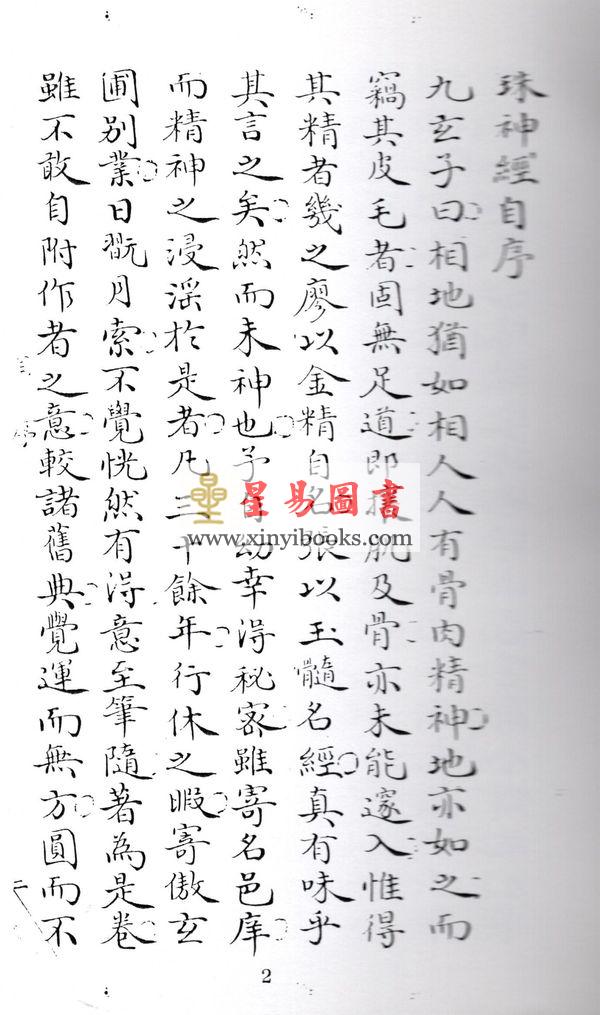 珠神經自序
九玄子曰相地猶如相人人有骨肉精神地亦如之而
竊其皮毛者固無足道即披肌及骨亦未能邃入惟得
其精者幾之廖以金精自名張以玉髓名經真有味乎
其言之矣然而未神也予自幼幸得秘密雖寄名邑庠
而精神之浸淫於是者凡三十餘年行休之暇寄傲玄
圃别業日翫月索不覺恍然有得意至筆隨著為是卷
雖不敢自附作者之意較諸舊典覺運而無方圓而不
星易圖書
www.xinyibooks.com
2